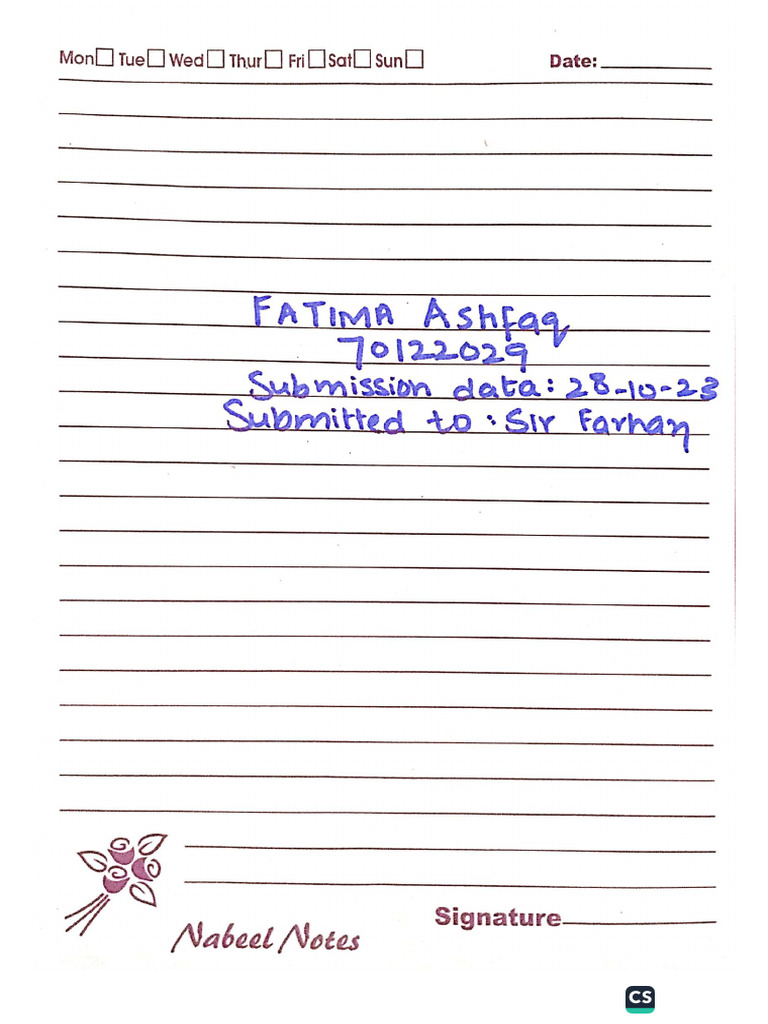 Mon Tue Wed Thur Fri Sat Sun Date:
FATIMA Ashfaq
70122029
Submission data: 28-10-23
Submitted to: Sir Farhan
Signature
Nabeel Notes
CS